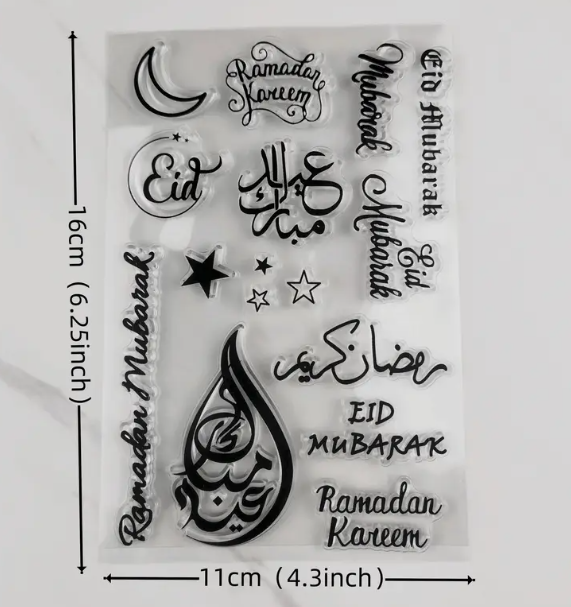 Ramadan
Kareem
Mubarak
Eid Mubarak
Eid
عيد
مبارك
Eid
Mubarak
16cm (6.25inch)
Ramadan Mubarak
رمضان كريم
EID
MUBARAK
عيد
مبارك
Ramadan
Kareem
11cm (4.3inch)